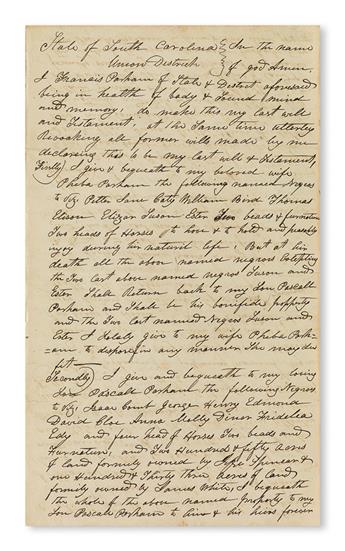 State of South Carolina } In the name
Union District } of god Amen
I Francis Parham of State & District aforesaid
being in health of body & Sound mind
and memory, do make this my last will
and Testament, at the Same time utterly
Revoaking all former wills made by me
declaring this to be my last will & Testament,
Firstly) I give & bequeath to my beloved wife
Pheba Parham the following named Negros
to viz Peter Jane Caty William Bird Thomas
Elison Elizar Susan Ester Two beads & furniture
Two heads of Horses to have & to hold and peasably
injoy during her naturil life, But at his
death all the above named negros Excepting
the Two last above named negros Suson and
Ester Shall Return back to my Son Pascall
Parham and Shall be his bonifide property
and the Two last named Negros Suson and
Ester I Solely give to my wife Pheba Parh-
-am to dispose in any manner She may dee
fit
Secondly) I give and bequeath to my loving
Son Pascale Parham the following Negros
to viz Isaac Count George Henry Edmond
David Cloe Anna Molly Diner Fridelea
Edy and four head of Horses Two beads and
Furneture, and Two Hundred & fifty Acres
of land formily owned by Spencer &
one Hundred & Thirty three acres of land
formily owned by James White, I bequeath
the whole of the above named property to my
Son Pascale Parham to him & his hiers forever